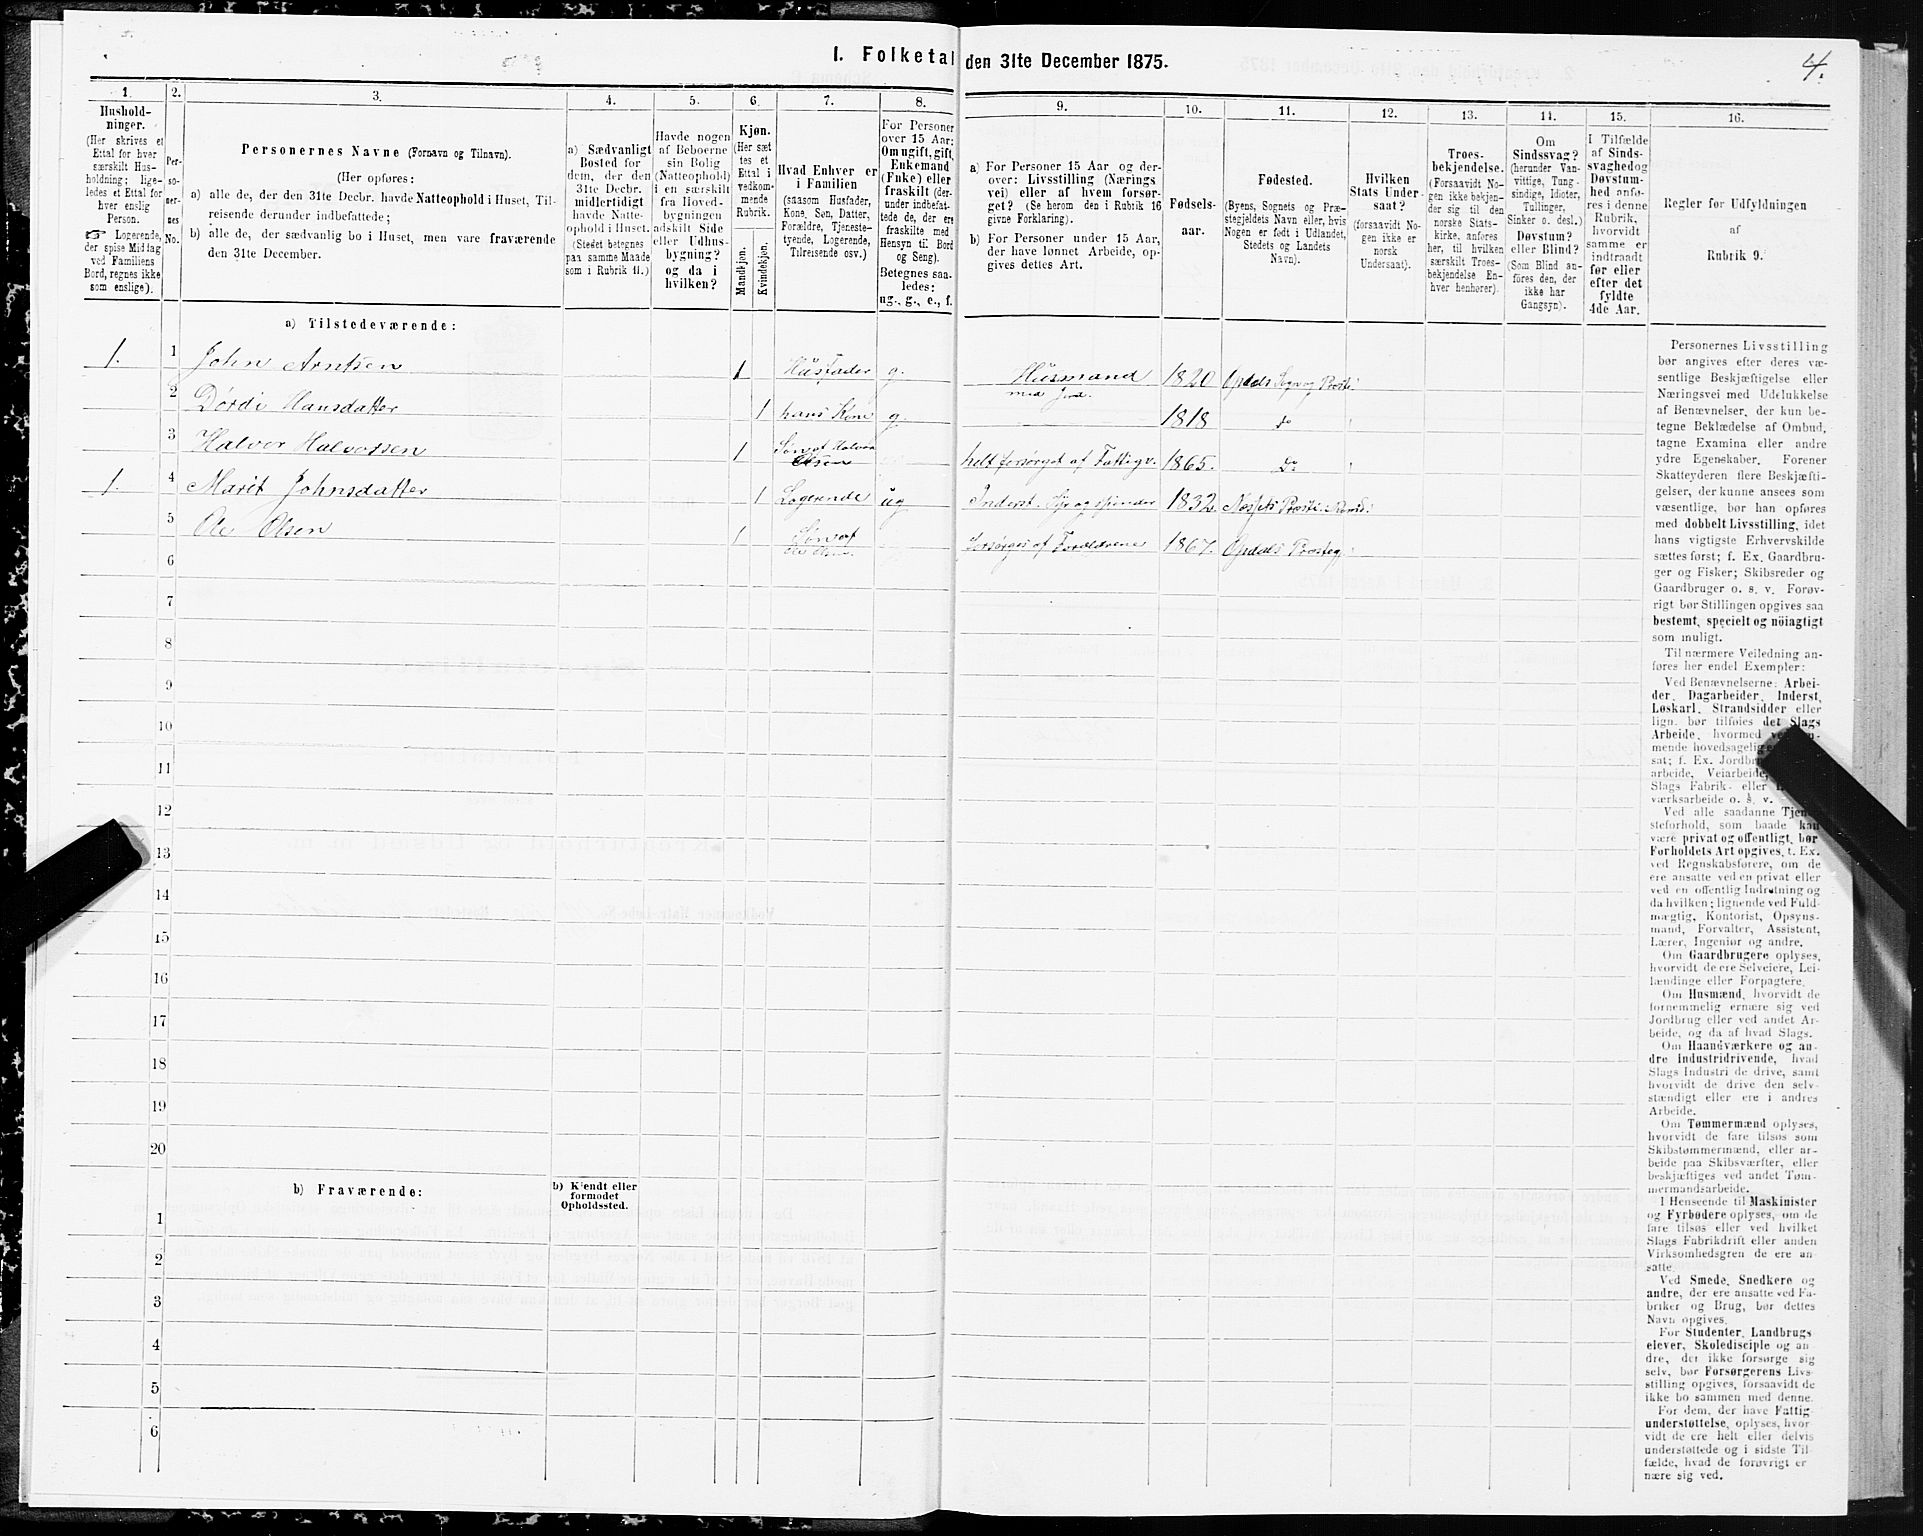 I. Folketal den 31te December 1875.
4.
1.
Hushold-
ninger.
(Her skrives et
Ettal for hver
særskilt Hus-
holdning; lige-
ledes et Ettal for
hver enslig
Person.
☞ Logerende,
der spise Middag
ved Familiens
Bord, regnes ikke
som enslige).
2.
Per-
so-
ner-
nes
No.
3.
Personernes Navne (Fornavn og Tilnavn).
(Her opføres:
a) alle de, der den 31te Decbr. havde Natteophold i Huset, Til-
reisende derunder indbefattede;
b) alle de, der sædvanlig bo i Huset, men vare fraværende
den 31te December.
4.
a) Sædvanligt
Bosted for
dem, der den
31te Decbr.
midlertidigt
havde Natte-
ophold i Huset.
(Stedet betegnes
paa samme Maade
som i Rubrik 11.)
5.
Havde nogen
af Beboerne
sin Bolig
(Natteophold)
i en særskilt
fra Hoved-
bygningen
adskilt Side
eller Udhus-
bygning?
og da i
hvilken?
6.
Kjøn.
(Her sæt
tes et
Ettal i
vedkom-
mende
Rubrik.
Mandkjøn.
Kvindekjøn.
7.
Hvad Enhver er
i Familien
(saasom Husfader,
Kone, Søn, Datter,
Forældre, Tjeneste-
tyende, Logerende,
Tilreisende osv.)
8.
For Personer
over 15 Aar:
Om ugift, gift,
Enkemand
(Enke) eller
fraskilt (der-
under indbefat-
tede de, der ere
fraskilte med
Hensyn til Bord
og Seng).
Betegnes saa-
ledes:
ug., g., e., f.
9.
a) For Personer 15 Aar og der-
over: Livsstilling (Nærings
vei) eller af hvem forsør-
get? (Se herom den i Rubrik 16
givne Forklaring).
b) For Personer under 15 Aar,
der have lønnet Arbeide, op-
gives dettes Art.
10.
Fødsels-
aar.
11.
Fødested.
(Byens, Sognets og Præ-
stegjeldets Navn eller, hvis
Nogen er født i Udlandet,
Stedets og Landets
Navn).
12.
Hvilken
Stats Under-
saat?
(forsaavidt No-
gen ikke er
norsk
Undersaat).
13.
Troes-
bekjendelse.
(Forsaavidt No-
gen ikke bekjen-
der sig til den
norske Stats-
kirke, anføres
her, til hvilken
særskilt Troes-
bekjendelse En-
hver henhører).
14.
Om
Sindssvag?
(herunder Van-
vittige, Tung-
sindige, Idioter,
Tullinger,
Sinker o. desl.)
Døvstum?
eller Blind?
(Som Blind an-
føres den, der
ikke har
Gangsyn).
15.
I Tilfælde
af Sinds-
svaghed og
Døvstum-
hed anfø-
res i denne
Rubrik,
hvorvidt
samme er
indtraadt
før eller
efter det
fyldte
4de Aar.
16.
Regler for Udfyldningen
af
Rubrik 9.
a) Tilstedeværende:
1. 1 John Arntsen 1 Husfader g. Husmand med Jord. 1820 Opdals Sogn og Præsti
2 Dordi Hansdatter 1 hans Kone g. 1818 do
3 Halvor Halvorsen 1 Søn af Halvor Olsen helt forsørget af Fattigv. 1865. Do
1. 4 Marit Johnsdatter 1 Logerende ug Inderst. Syr og spinder 1832.
5 Ole Olsen 1 Søn af Ole Olsen forsørges af Forældrene 1867. Opdals Præsteg.
6
7
8
9
10
11
12
13
14
15
16
17
18
19
20
b) Fraværende:
b) Kjendt eller
formodet
Opholdssted.
1
2
3
4
5
6
Personernes Livsstilling
bør angives efter deres væ-
sentlige Beskjæftigelse eller
Næringsvei med Udelukkelse
af Benævnelser, der kun be-
tegne Beklædelse af Ombud,
tagne Examina eller andre
ydre Egenskaber. Forener
Skatteyderen flere Beskjæfti-
gelser, der kunne ansees som
væsentlige, bør han opføres
med dobbelt Livsstilling, idet
hans vigtigste Erhvervskilde
sættes først; f. Ex. Gaardbru-
ger og Fisker; Skibsreder og
Gaardbruger o. s. v. Forøv-
rigt bør Stillingen opgives saa
bestemt, specielt og nøiagtigt
som muligt.
Til nærmere Veiledning an-
føres her endel Exempler:
Ved Benævnelserne: Arbei-
der, Dagarbeider, Inderst,
Løskarl, Strandsidder eller
lign. bør tilføies det Slags
Arbeide, hvormed
mende hovedsagelig
sat; f. Ex.
arbeide, Veiarbeide,
Slags Fabrik- eller
værksarbeide o. s. v.
Ved alle saadanne Tjene-
steforhold, som baade kan
være privat og offentligt, bør
Forholdets Art opgives, t. Ex.
ved Regnskabsførere, om de
ere ansatte ved en privat eller
ved en offentlig Indretning og
da hvilken; lignende ved Fuld-
mægtig, Kontorist, Opsyns-
mand, Forvalter, Assistent,
Lærer, Ingeniør og andre.
Om Gaardbrugere oplyses,
hvorvidt de ere Selveiere, Lei-
lændinge eller Forpagtere.
Om Husmænd, hvorvidt de
fornemmelig ernære sig ved
Jordbrug eller ved andet Ar-
beide, og da af hvad Slags.
Om Haandværkere og an-
dre Industridrivende, hvad
Slags Industri de drive, samt
hvorvidt de drive den selv-
stændigt eller ere i andres
Arbeide.
Om Tømmermænd oplyses,
hvorvidt de fare tilsøs som
Skibstømmermænd, eller ar-
beide paa Skibsværfter, eller
beskjæftiges ved andet Tøm-
mermandsarbeide.
I Henseende til Maskinister
og Fyrbødere oplyses, om de
fare tilsøs eller ved hvilket
Slags Fabrikdrift eller anden
Virksomhedsgren de ere an-
satte.
Ved Smede, Snedkere og
andre, der ere ansatte ved Fa-
briker og Brug, bør dettes
Navn opgives.
For Studenter, Landbrugs
elever, Skoledisciple og an
dre, der ikke forsørge sig
selv, bør Forsørgerens Livs-
stilling opgives, forsaavidt de
ikke bo sammen med denne.
For dem, der have Fattig
understøttelse, oplyses, hvor
vidt de ere helt eller delvis
understøttede og i sidste Til-
fælde, hvad de forøvrigt er
nære sig ved.